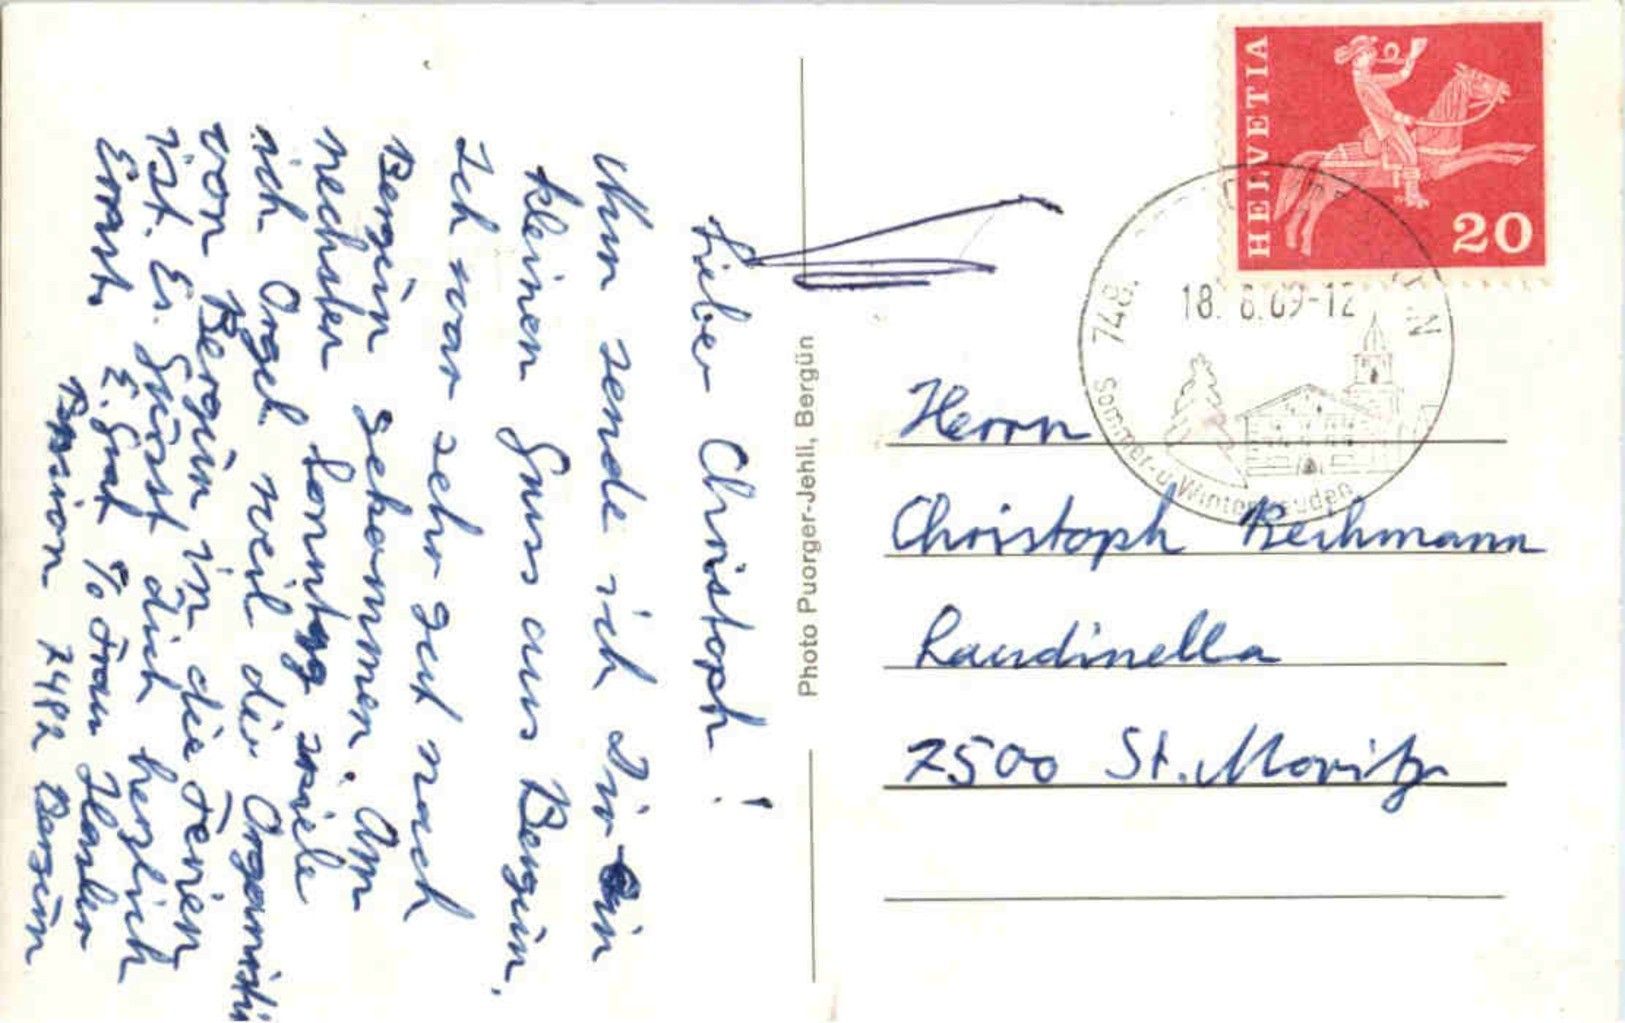 Lieber Christoph!
Nun sende ich Dir ein
kleinen Gruss aus Bergün.
Ich war sehr gut nach
Bergün gekommen. Am
nechsten Sonntag spiele
ich Orgel weil die Organistin
von Bergün in die Ferien
ist. Es Grüsst dich herzlich
Ernst. E. Graf c/o Frau Hasler
Pension 7482 Bergün
Photo Puorger-Jehli, Bergün
HELVETIA
20
748.
18. 8.69-12
Sommer-u. Winterfreuden
Herrn
Christoph
Laudinella
7500 St. Moritz